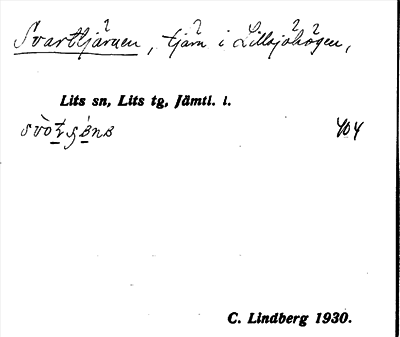 Svarttjärnen, tjärn i Lillsjöhögen,
Lits sn, Lits tg, Jämtl. l.
404
C. Lindberg 1930.